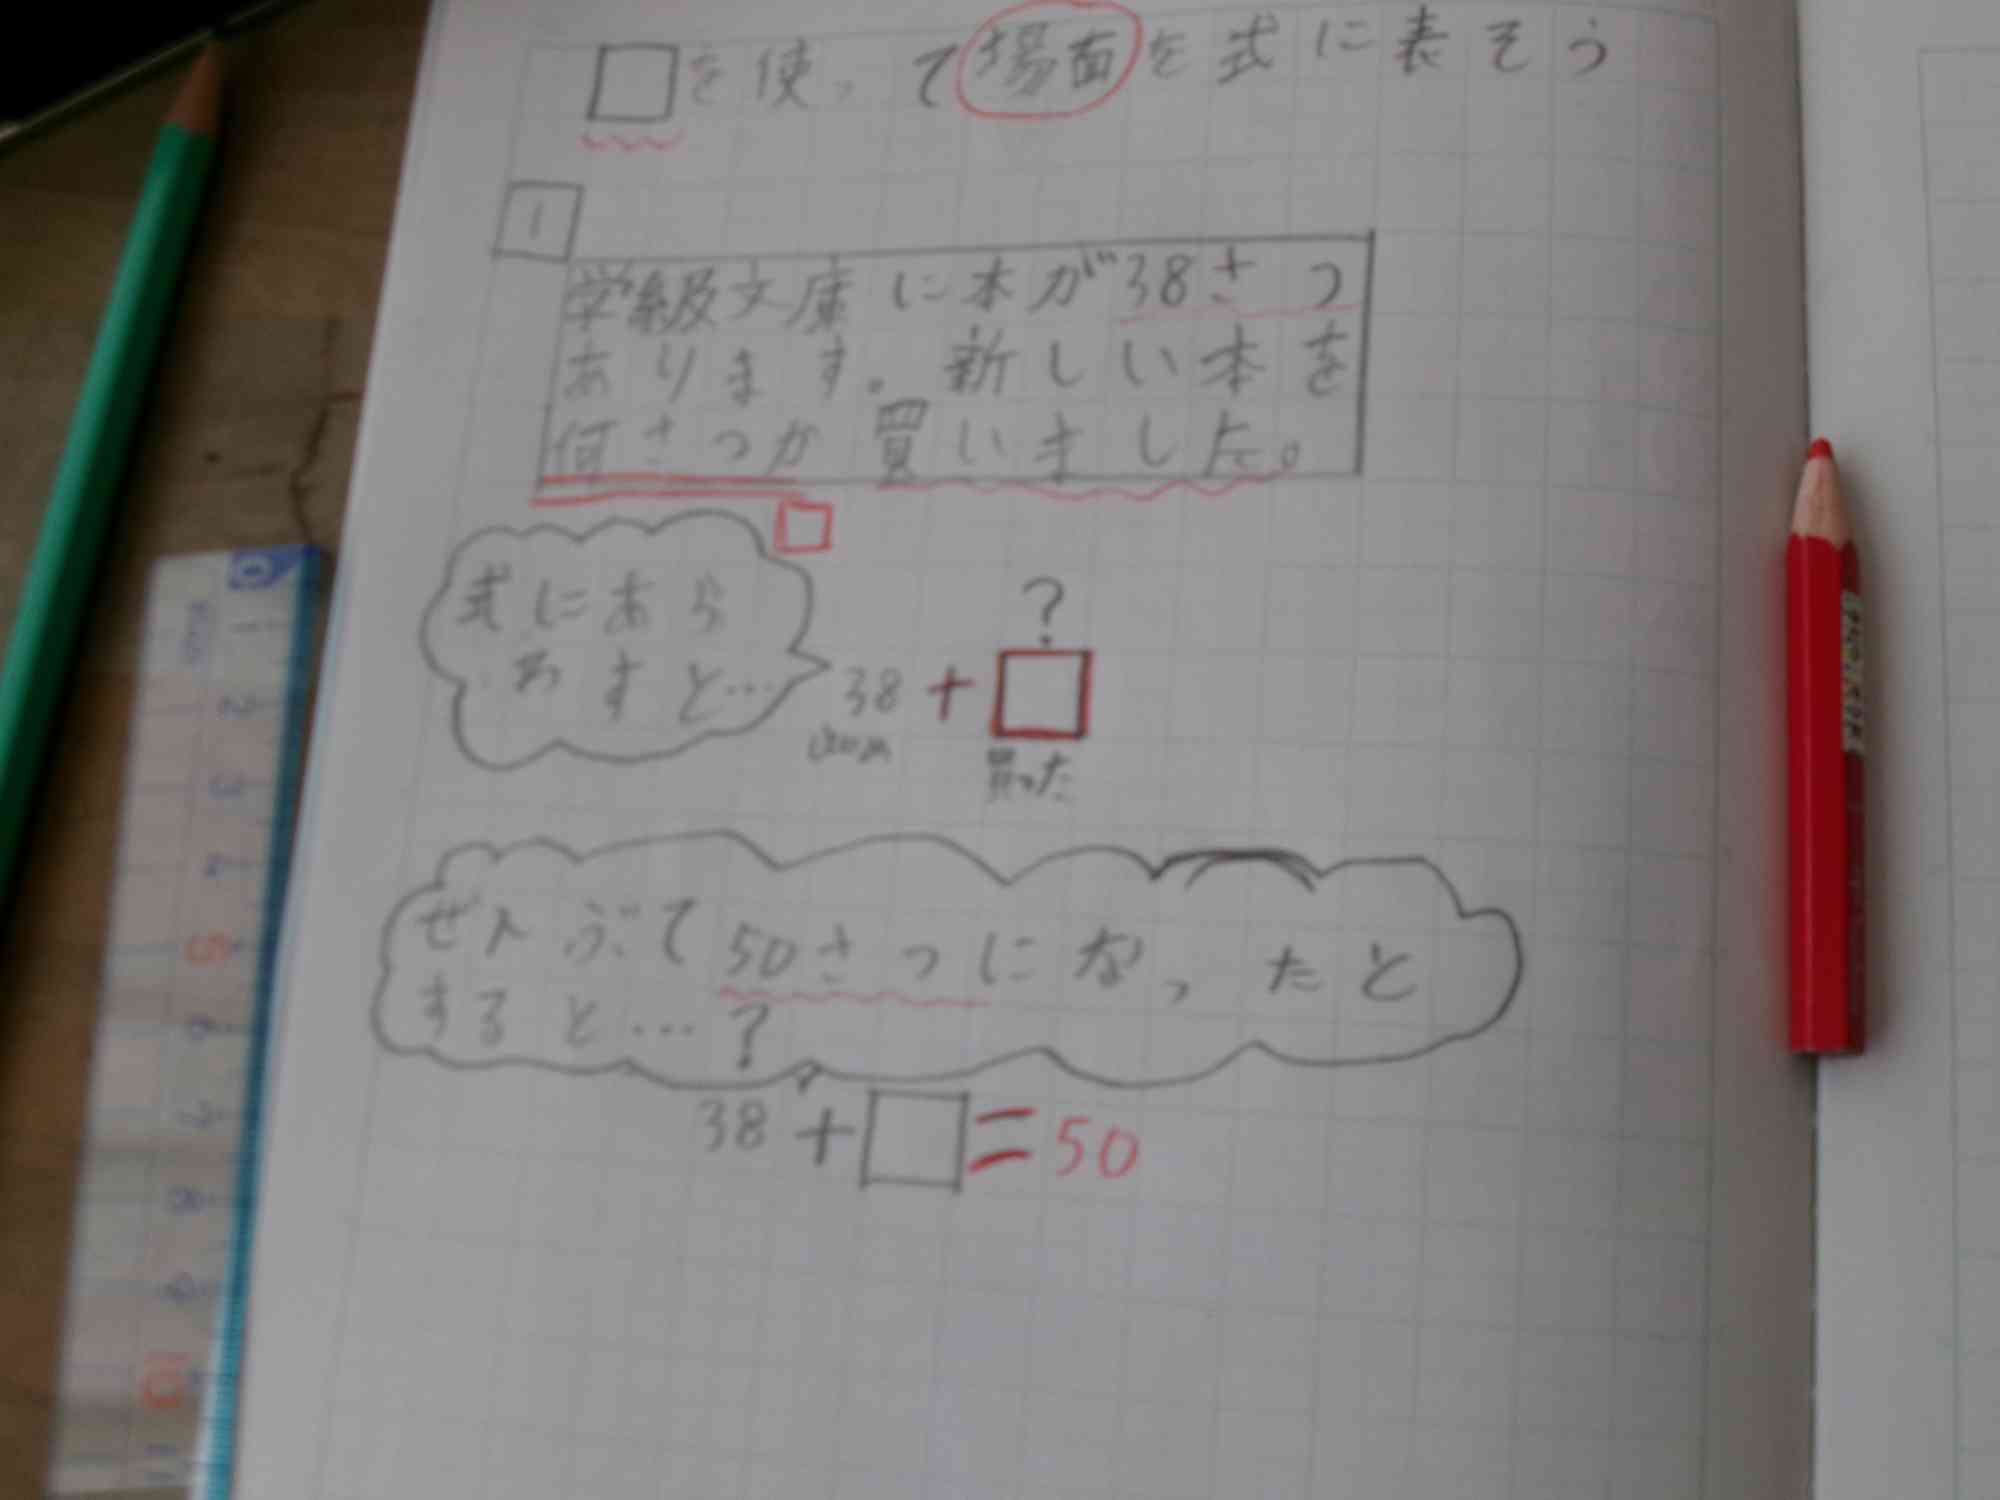 □を使って場面を式に表そう
1
学級文庫に本が38さつ
あります。新しい本を
何さつか買いました。
□
式にあら
わすと…
?
38+□
買った
ぜんぶで50さっになったと
すると…?
38+□=50
0
1
2
3
4
5
6
7
8
9
10
11